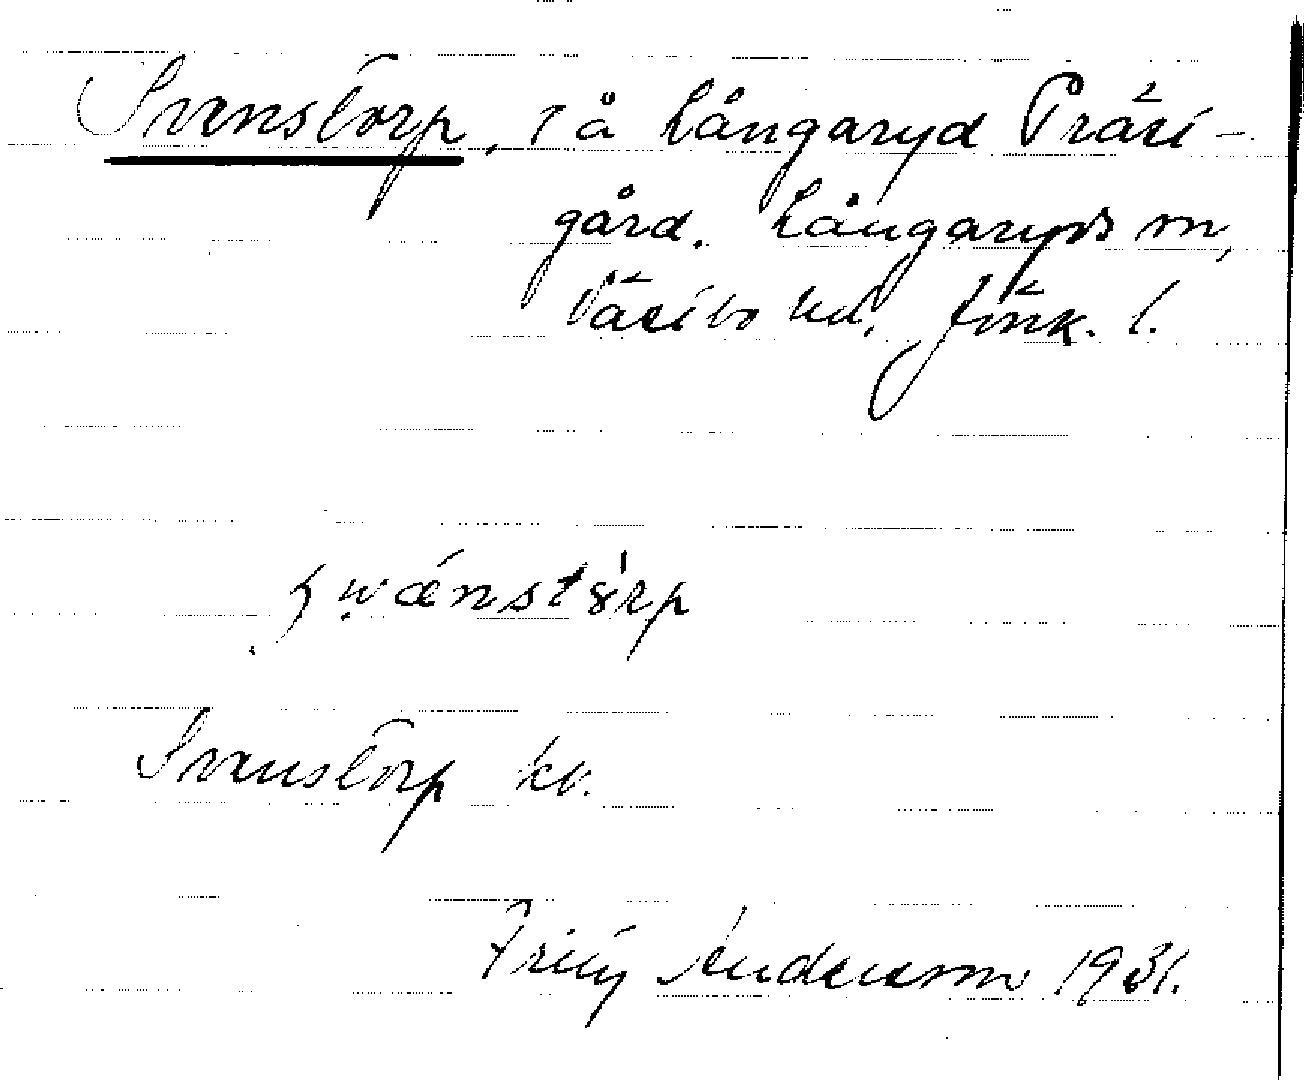 Svenstorp, t å Långaryd Präst-
gård. Långaryds sn,
Västbo hd. Jönk. l.
swænstôrp
Svenstorp kv.
Andersson 1931.